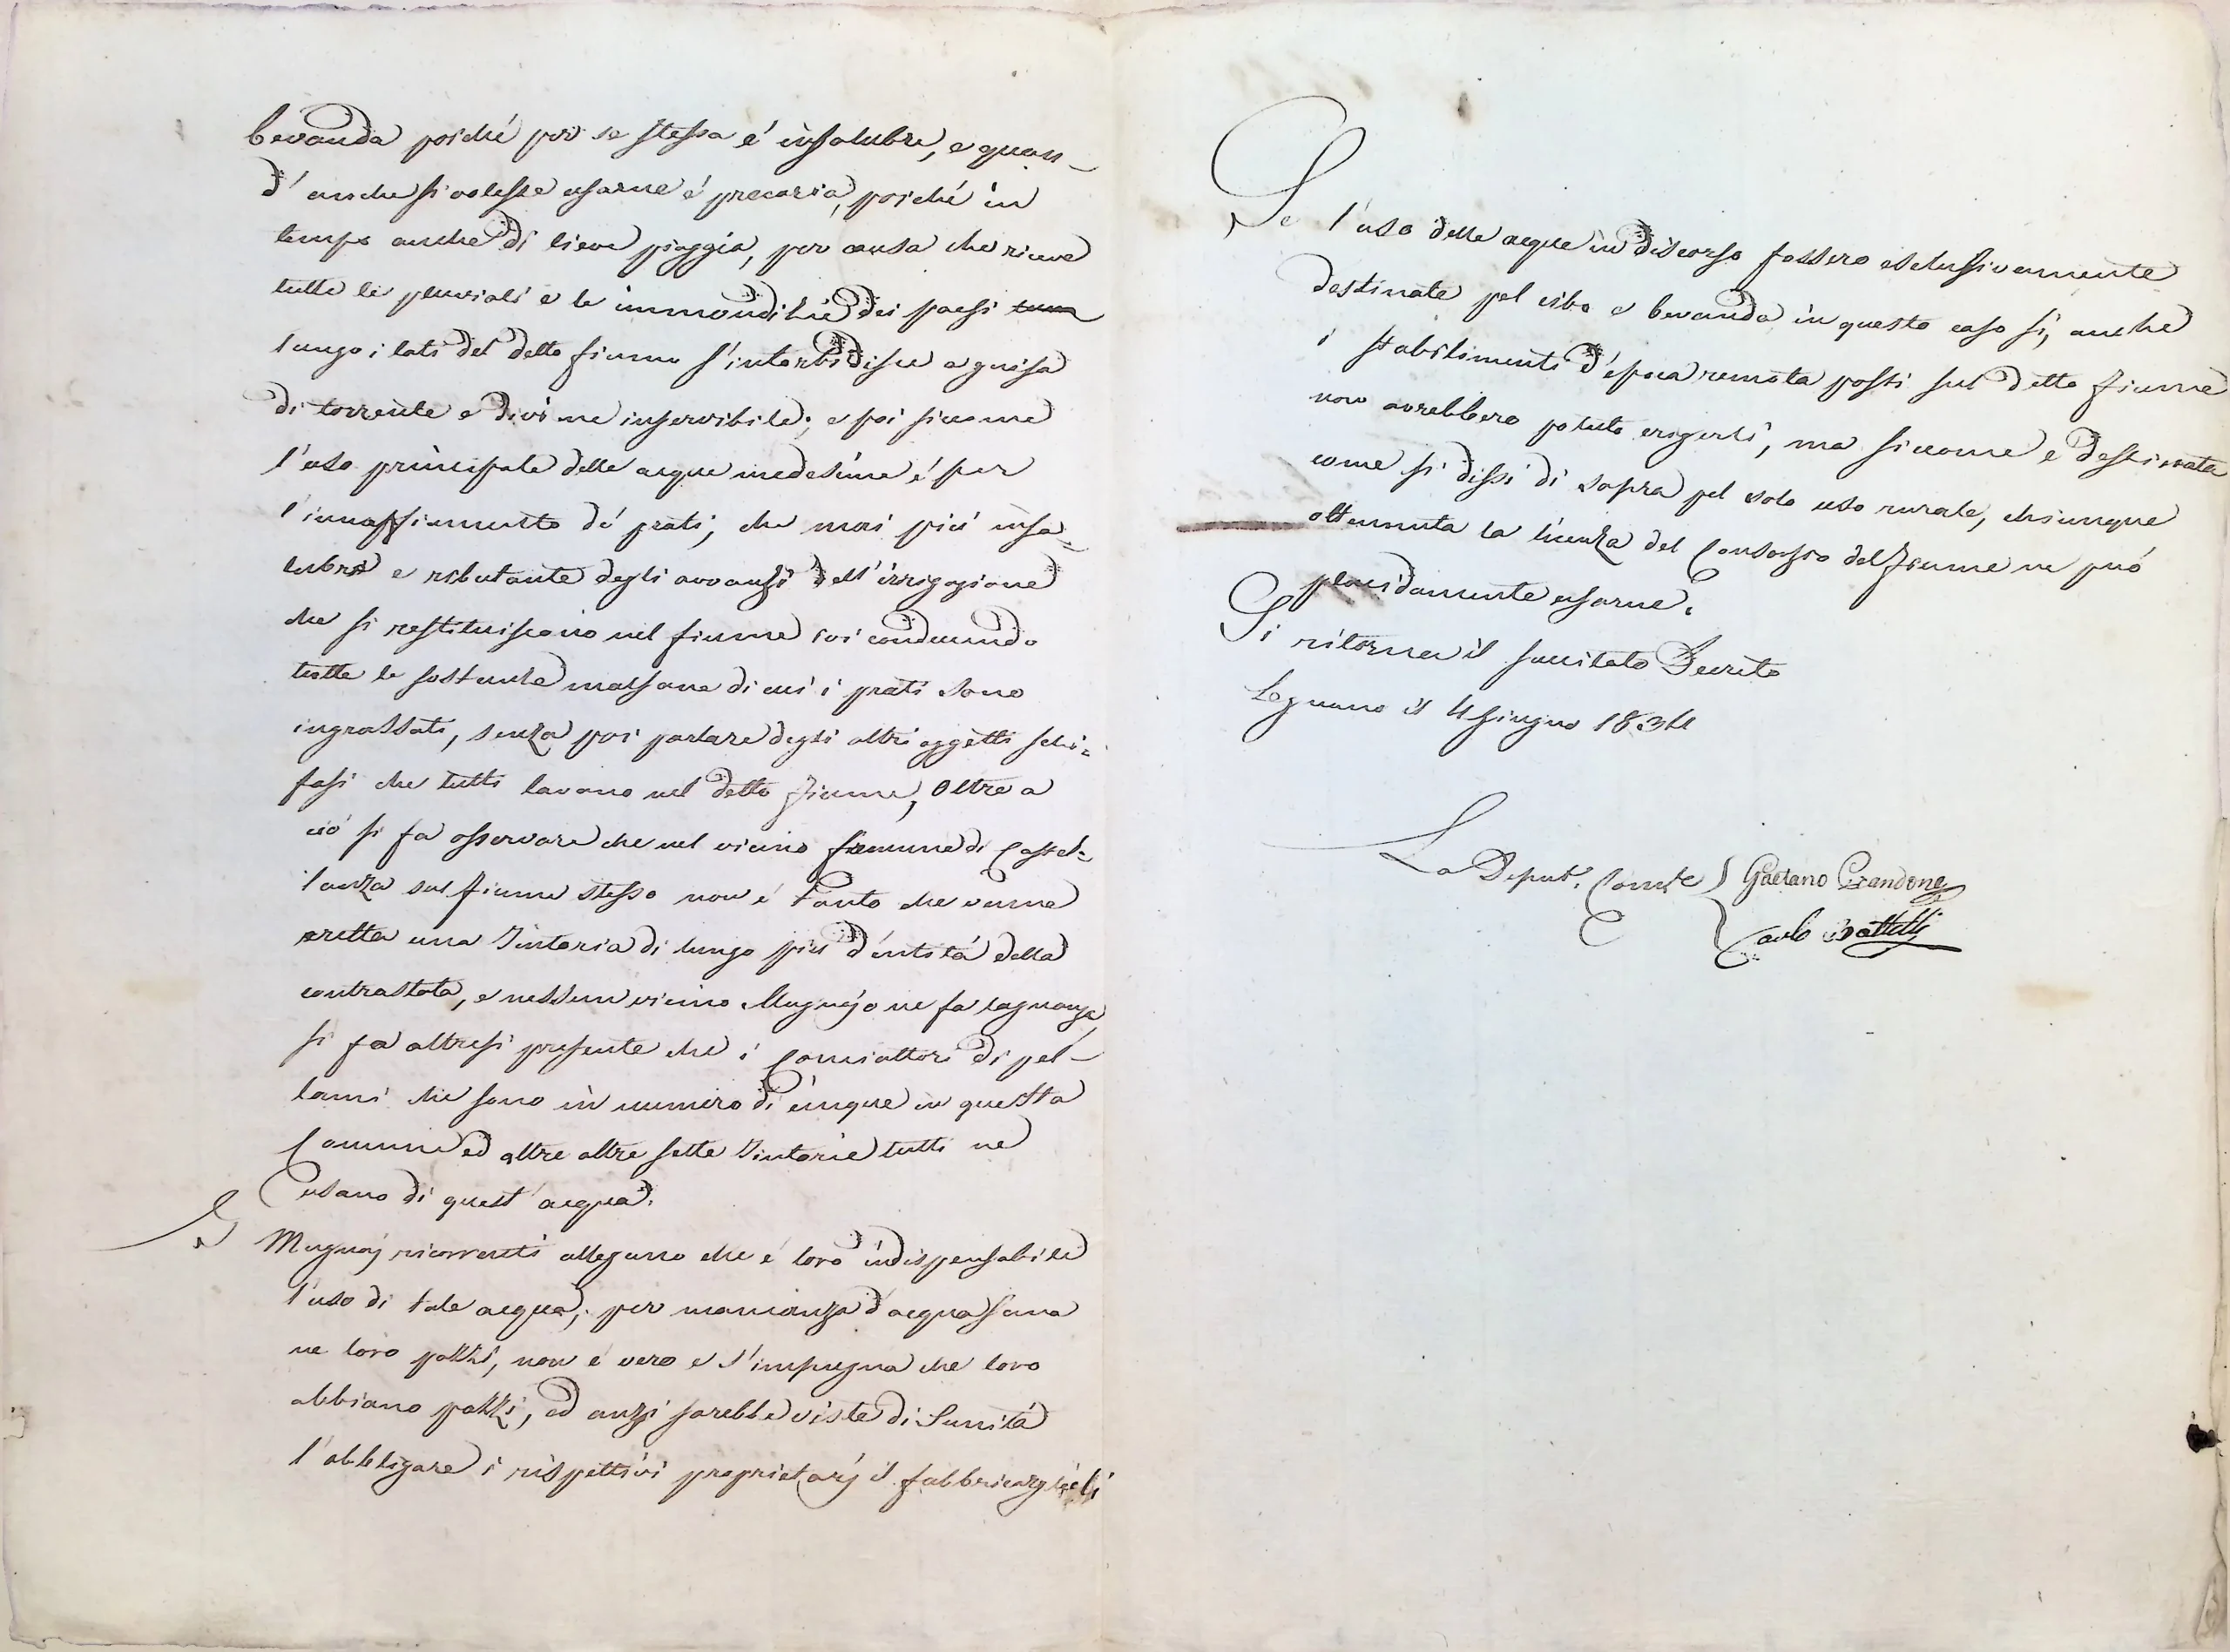 bevanda poiché per se stessa é insalubre, e quan-
d'anche si volesse usarne é precaria, poiché in
tempo anche di lieve pioggia, per causa che riceve
tutte le pluviali e le immondizie dei paesi
lungo i lati del detto fiume s'intorbidisce a guisa
di torrente e diviene inservibile; e poi siccome
l'uso principale delle acque medesime é per
l'innaffiamento de' prati, che mai piú insa=
lubre e ributante degli avvanzi dell'irrigazione
che si restituiscono nel fiume ivi conducendo
tutte le sostanze malsane di cui i prati sono
ingrassati, senza poi parlare degli altri oggetti schi=
fosi che tutti lavano nel detto fiume, Oltre a
ció si fa osservare che nel vicino Commune di Castel=
lanza sul fiume stesso non é tanto che venne
eretta una Tintoria di lungo piú d'entitá della
contrastata, e nessun vicino Mugnajo ne fa lagnanza,
si fa altresi presente che i Conciattori di pel-
lami che sono in numero di cinque in questa
Comune ed altre altre sette Tintorie tutti ne
usano di quest'acqua.
Se i Mugnaj ricorrenti allegano che é loro indispensabile
l'uso di tale acqua, per mancanza d'acqua sana
ne loro pozzi, non é vero e s'impugna che loro
abbiano pozzi, ed anzi sarebbe viste di Sanitá
l'obbligare i rispettivi proprietarj il fabbricargli
Se l'uso delle acque in discorso fossero esclusivamente
destinate pel cibo e bevanda in questo caso si, anche
i stabilimenti d'epoca remota posti sul detto fiume
non avrebbero potuto erigersi, ma siccome e destinata
come si dissi di sopra pel solo uso rurale, chiunque
ottenuta la licenza del Consorzio del fiume ne puó
placidamente usarne.
Si ritorna il succitato Decreto
Legnano il 4 giugno 1834
La Deput.e Com.le Gaetano Grandone
Carlo Bottelli